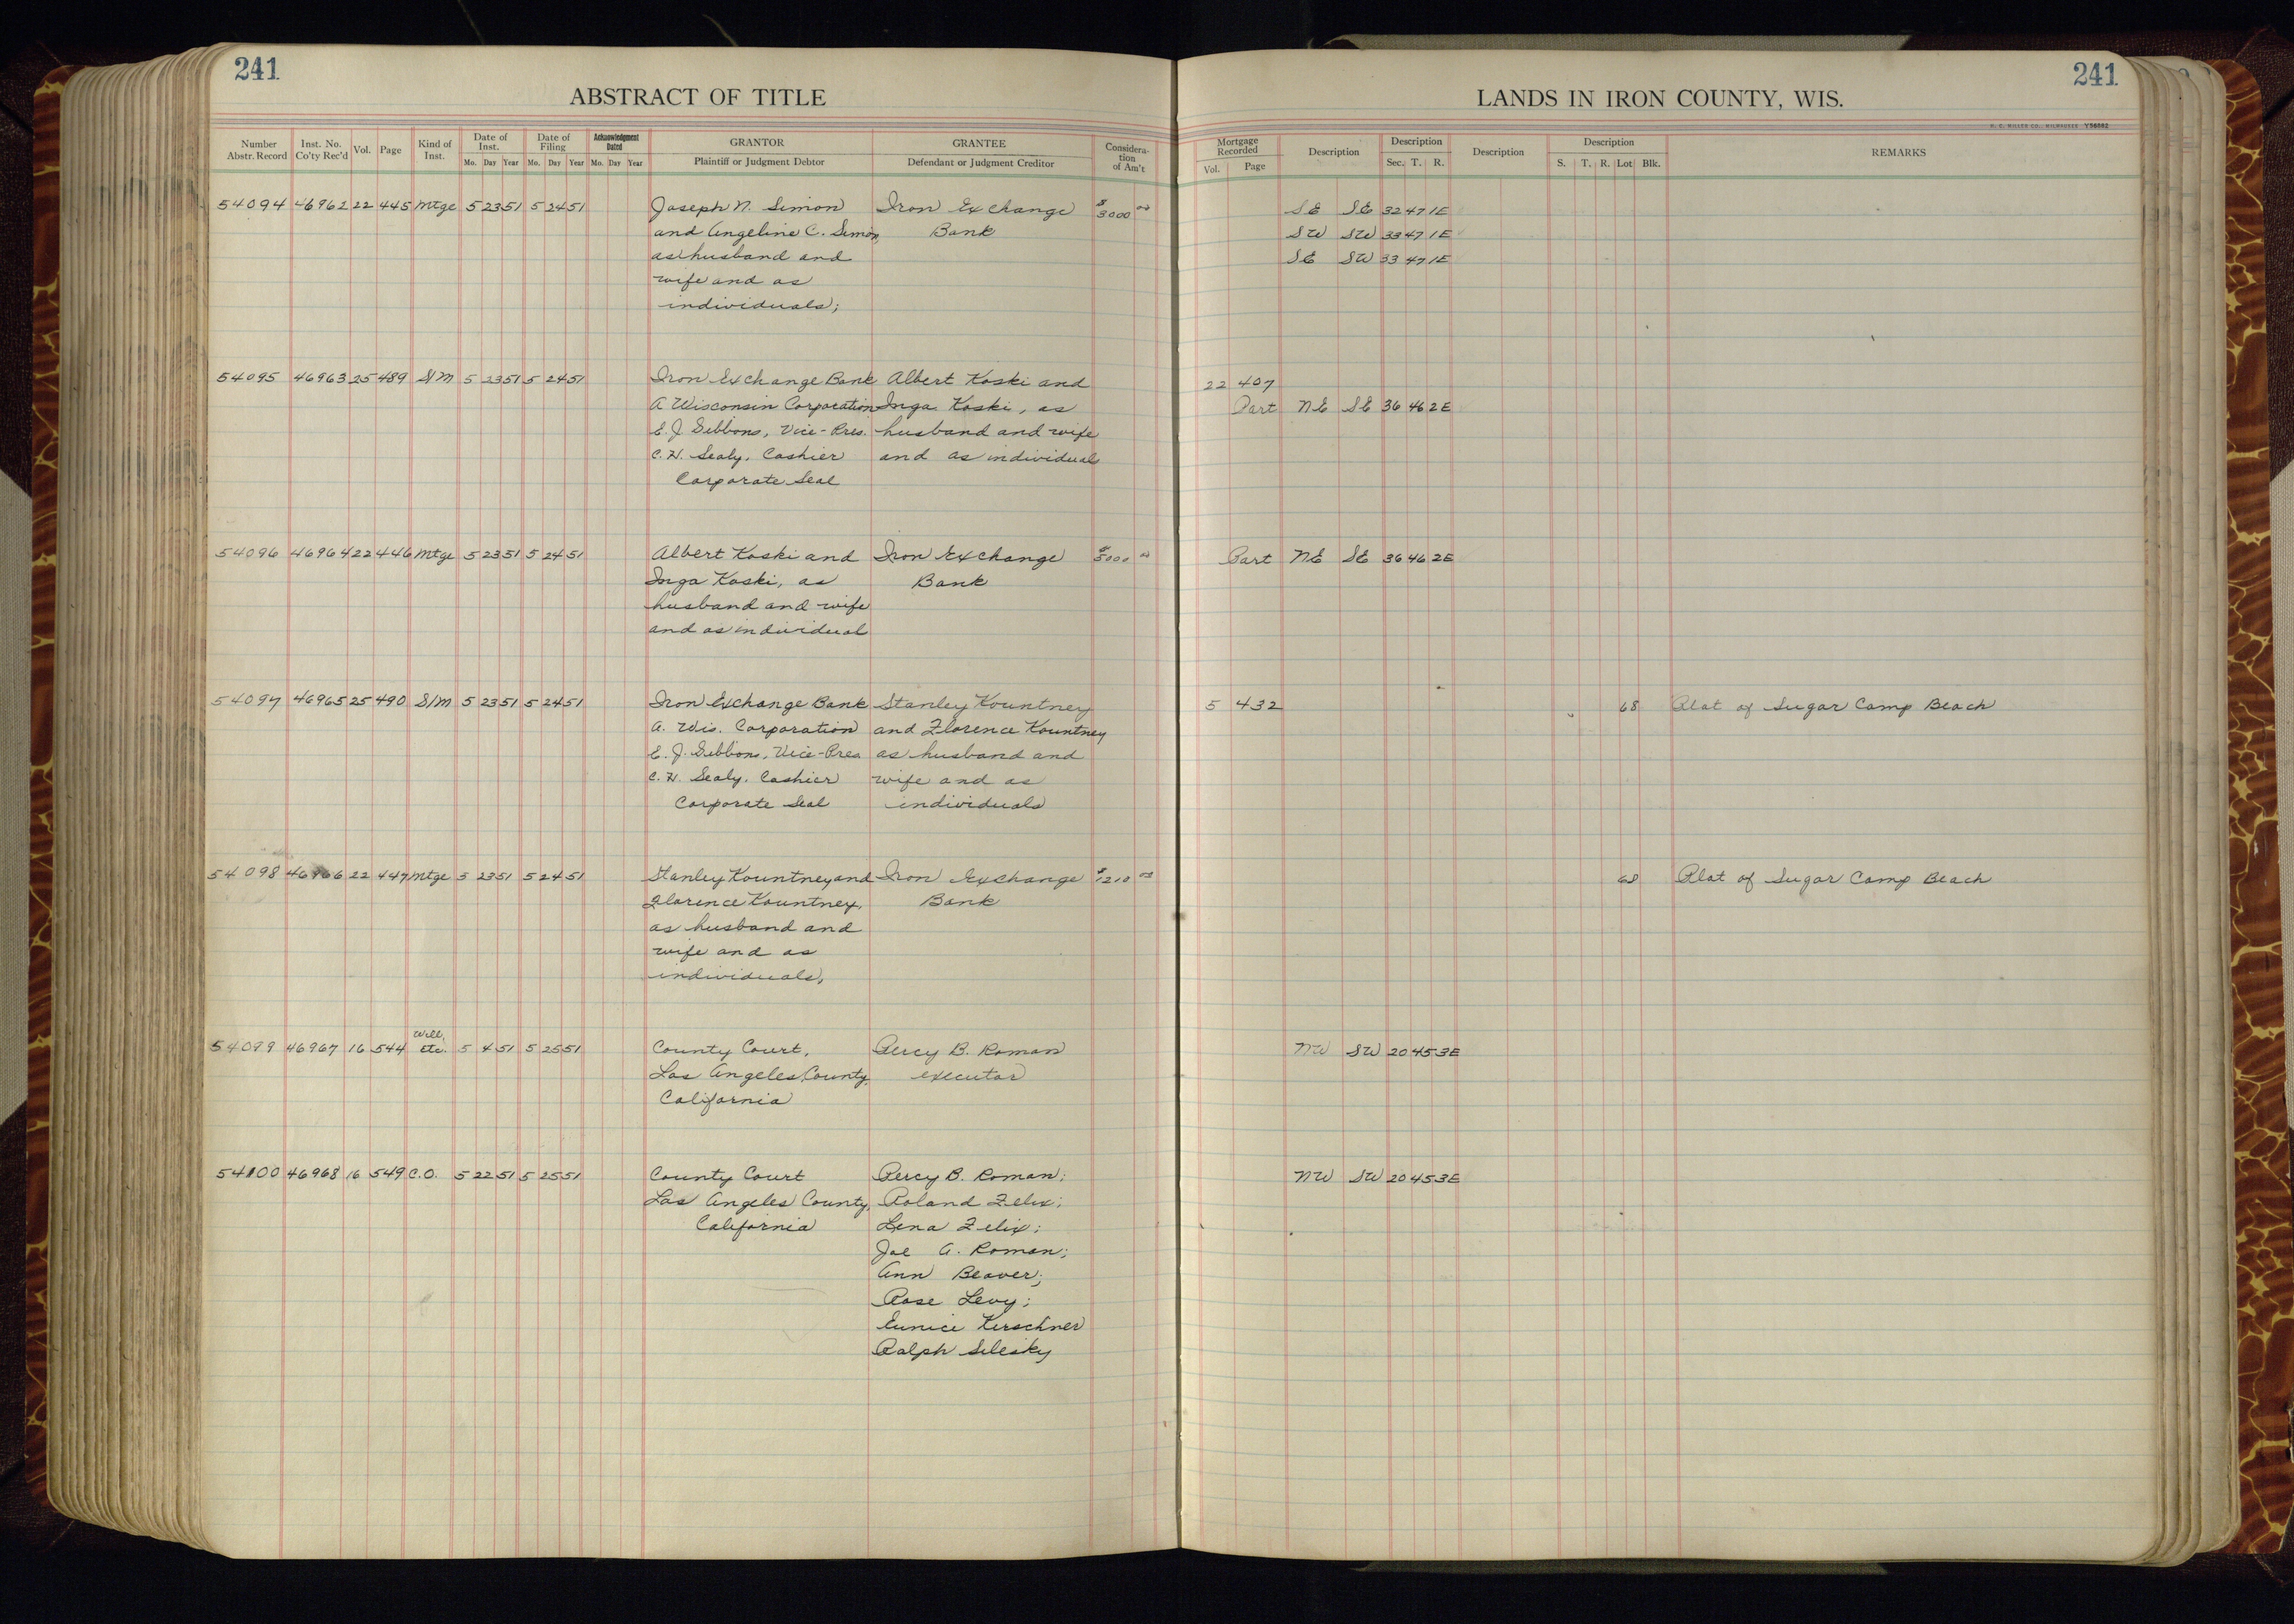 241
ABSTRACT OF TITLE
Number Abstr. Record | Inst. No. Co'ty Rec'd | Vol. | Page | Kind of Inst. | Date of Inst. Mo. Day Year | Date of Filing Mo. Day Year | Acknowledgment Dated Mo. Day Year | GRANTOR Plaintiff or Judgment Debtor | GRANTEE Defendant or Judgment Creditor | Consideration of Am't
54094 46962 22 445 Mtge 5 23 51 5 24 51 Joseph N. Simon Iron Exchange $3000 00
and Angeline C. Simon, Bank
as husband and
wife and as
individuals;
54095 46963 25 489 S/M 5 23 51 5 24 51 Iron Exchange Bank Albert Koski and
A Wisconsin Corporation Inga Koski, as
E. J. Gibbons, Vice-Pres. husband and wife
C. H. Sealy, Cashier and as individual
Corporate Seal
54096 46964 22 446 Mtge 5 23 51 5 24 51 Albert Koski and Iron Exchange $5000 00
Inga Koski, as Bank
husband and wife
and as individual
54097 46965 25 490 S/M 5 23 51 5 24 51 Iron Exchange Bank Stanley Kountney
A. Wis. Corporation and Florence Kountney
E. J. Gibbons, Vice-Pres as husband and
C. H. Sealy, Cashier wife and as
Corporate Seal individuals
54098 46966 22 447 Mtge 5 23 51 5 24 51 Stanley Kountney and Iron Exchange $1210 00
Florence Kountney, Bank
as husband and
wife and as
individuals,
54099 46967 16 544 Will, Etc. 5 4 51 5 25 51 County Court, Percy B. Roman
Los Angeles County, executor
California
54100 46968 16 549 C.O. 5 22 51 5 25 51 County Court Percy B. Roman;
Los Angeles County, Roland Zelix;
California Lena Zelix;
Joe A. Roman;
Ann Beaver;
Rose Levy;
Eunice Kerschner
Ralph Silesky
241
LANDS IN IRON COUNTY, WIS.
H. C. MILLER CO., MILWAUKEE Y56882
Mortgage Recorded Vol. Page | Description | Description Sec. T. R. | Description | Description S. T. R. Lot Blk. | REMARKS
SE SE 32 47 1E
SW SW 33 47 1E
SE SW 33 47 1E
22 407
Part NE SE 36 46 2E
Part NE SE 36 46 2E
5 432 68 Plat of Sugar Camp Beach
68 Plat of Sugar Camp Beach
NW SW 20 45 3E
NW SW 20 45 3E